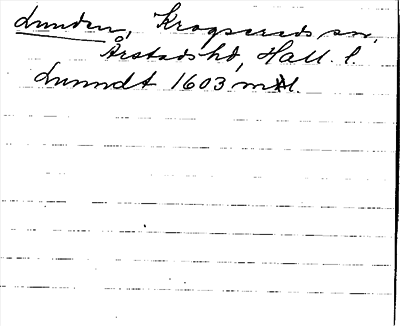 Lunden, Krogsereds sn,
Årstads hd, Hall. l.
Lunndt 1603 mtl.